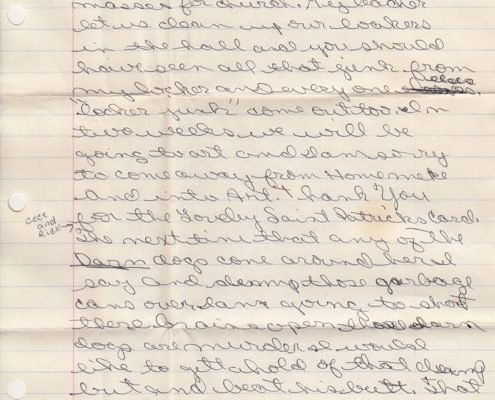 masses for church. My teacher
let us clean up our lockers
in the hall and you should
have seen all that junk from
my locker and every one
"locker junk" come out too. In
two weeks we will be
going to art and I am sorry
to come away from Home make
and into Art. Thank You
Cece
and
Rick
for the Saint Patricks card.
The next time that any of the
Darn dogs come around here I
say and those garbage
cans over I am going to shoot
there brains open those darn
dogs are murder I would
like to get ahold of that
but and beat his butt. That